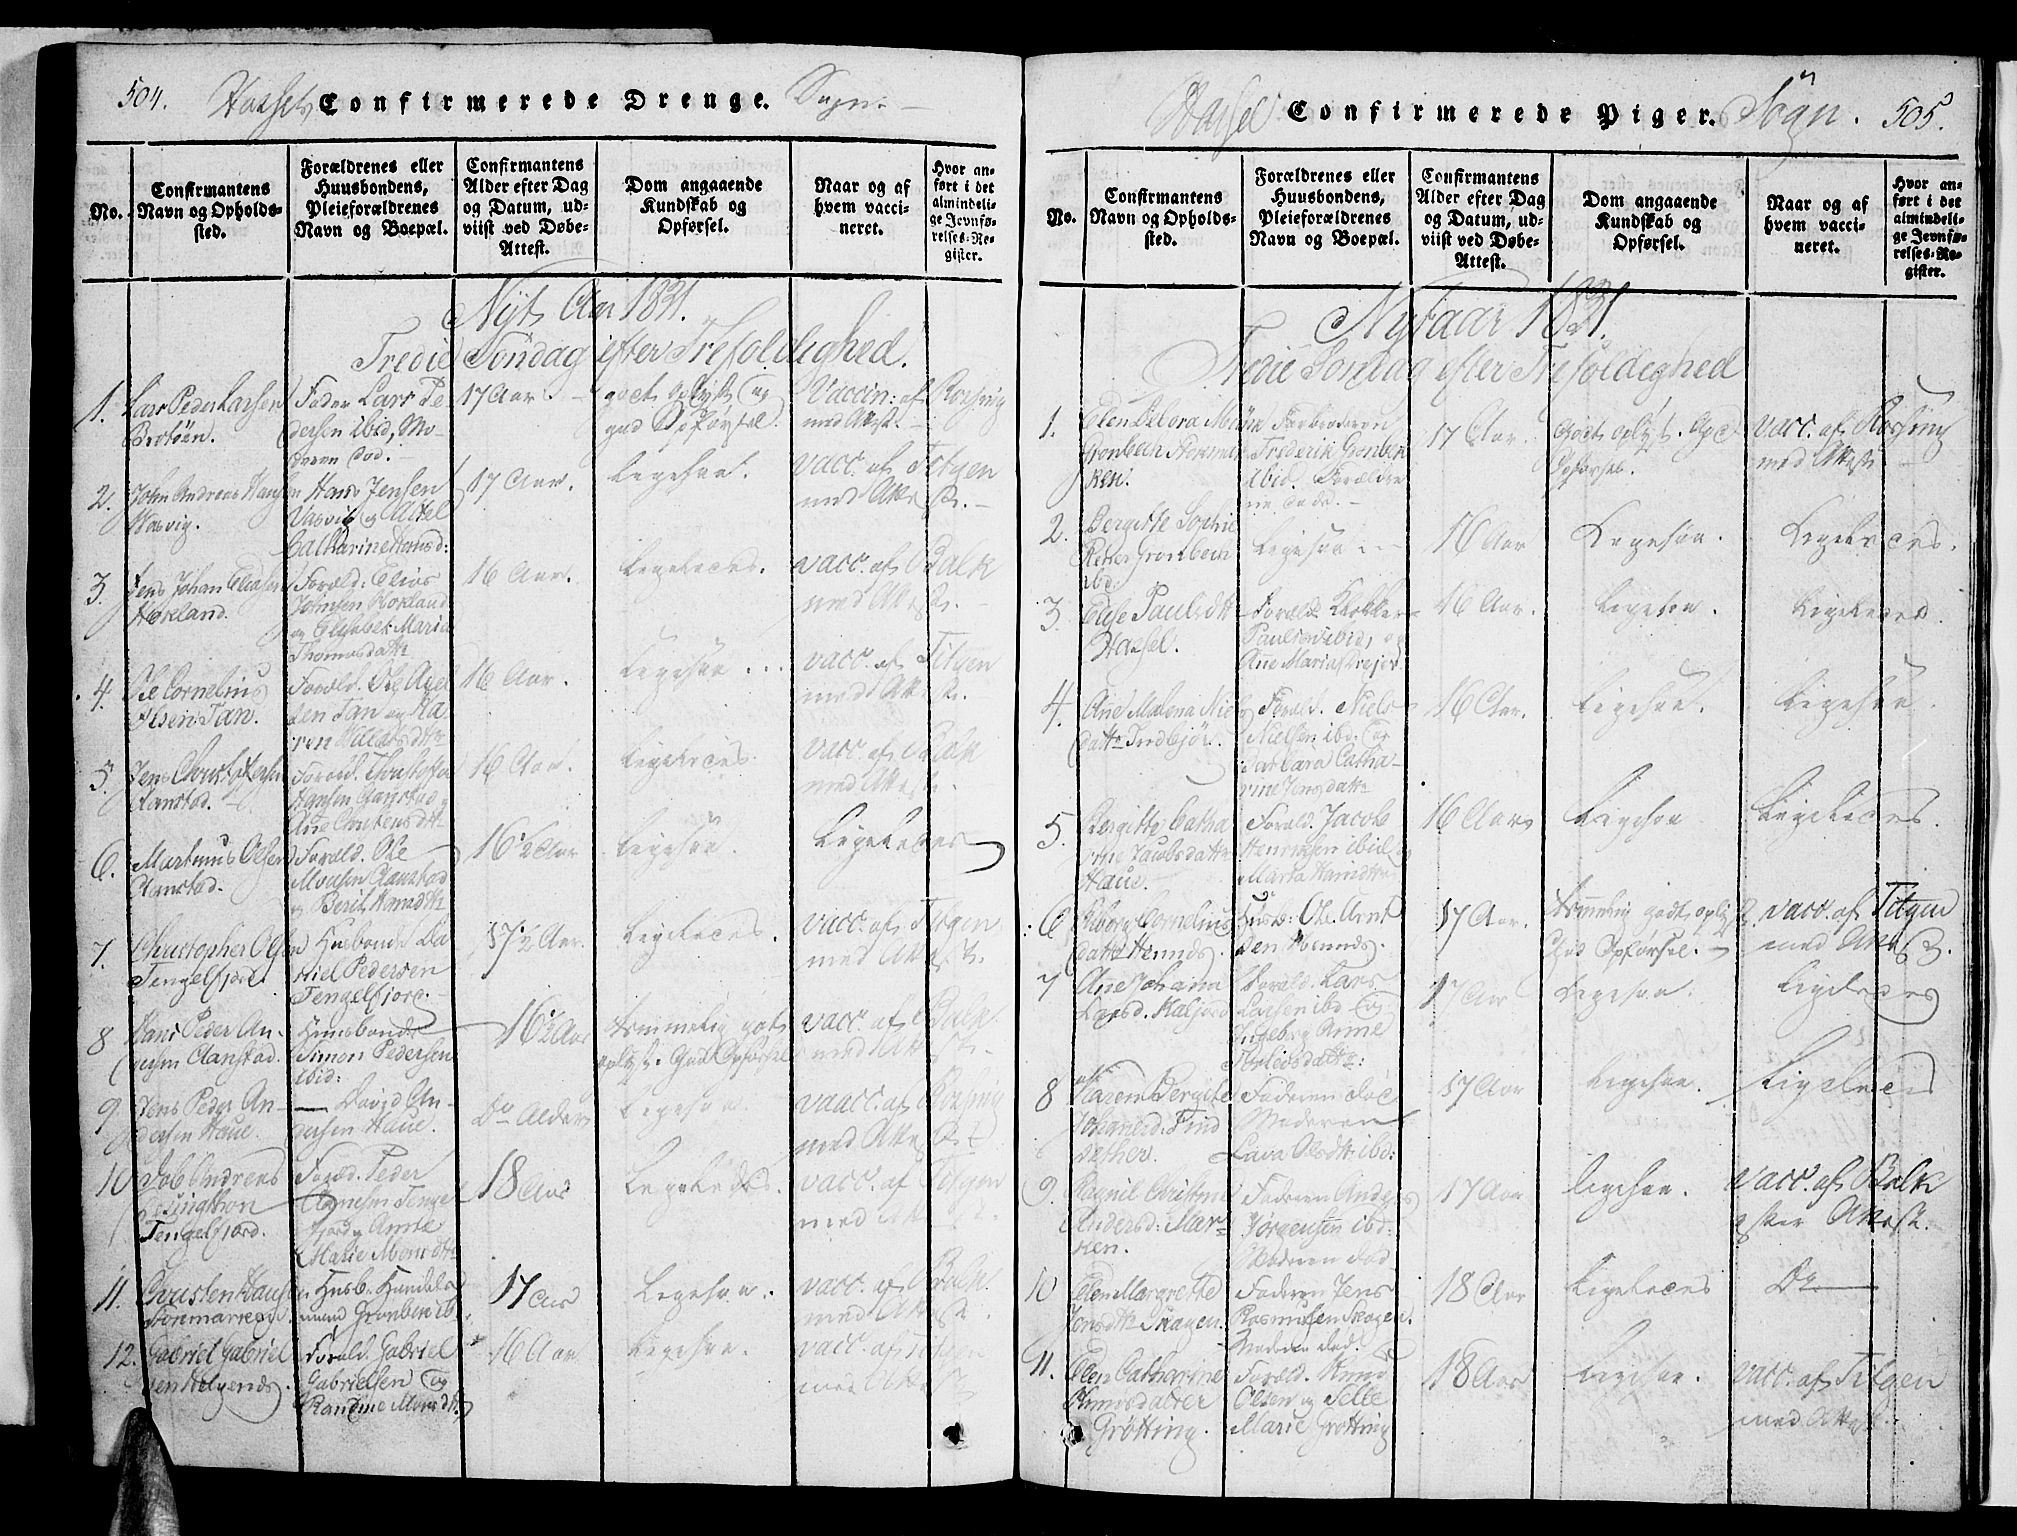 504. Hassel Confirmerede Drenge. Sogn.
No.
Confirmantens
Navn og Opholds-
sted.
Forældrenes eller
Huusbondens,
Pleieforældrenes
Navn og Boepæl.
Confirmantens
Alder efter Dag
og Datum, ud-
viist ved Døbe-
Attest.
Dom angaaende
Kundskab og
Opførsel.
Naar og af
hvem vacci-
neret.
Hvor an-
ført i det
almindeli-
ge Jevnfø-
relses-Re-
gister.
Nyt Aar 1831.
Tredie Søndag efter Trefoldighed.
1. Lars Peder Larsen
Brotøen.
Fader Lars Pe-
dersen ibid, Mo-
deren død.
17 Aar
godt oplyst og
god Opførsel.
Vaccin: af Rossing
med Attest.
2. John Andreas Hansen
Vasvig.
Hans Jensen
Vasvig og
17 Aar.
Ligesaa.
vacc. af Titgen
med Attest.
3. Jens Johan
Hokland.
Foræld: Elias
Johnsen Hokland
og Elisabet Maria
Thomasdattr
16 Aar.
Ligeledes.
vacc. af Balk
med Attest.
4. Ole Cornelius
Olsen
Foræld. Ole
16 Aar.
Ligesaa
vacc. af Titgen
med Attest.
5. Jens
Aanstad.
Foræld.
Hansen Aanstad
Ane
16 Aar.
Ligeledes.
vacc. af Balk
med Attest.
6. Martinus Olsen
Aanstad.
Foræld. Ole
Aanstad
og Berit
16 1/2 Aar
Ligesaa.
Ligeledes
7. Christopher Olsen
Tengelfjord
Husbonde Da
niel Pedersen
Tengelfjord.
17 1/2 Aar.
Ligeledes.
vacc. af Titgen
med Attest.
8 Hans Peder An-
dersen Aanstad.
Huusbonde
Simon Pedersen
ibid:
16 1/2 Aar
temmelig godt
oplyst. God Opførsel
vacc. af Balk.
med Attest.
9 Jens Peder An-
dersen Haue.
— David An-
dersen Haue.
Do Alder
Ligesaa
vaacc. af Rossing
med Attest
10 Job Andreas
Tengelfjord.
Foræld. Peder
Tengel
fjord og Anne
Marie
18 Aar
Ligeledes.
vacc. af Titgen
med Attest.
11. Christen Hans
Husb. Handels
mand Grønbech ib.
17 Aar
Ligesaa.
vacc. af Balk.
med Attest.
12. Gabriel Gabriel
sen
Foræld. Gabriel
Gabrielsen og
16 Aar
Ligesaa.
vacc. af Titgen
med Attest
Hassel Confirmerede Piger. Sogn. 505.
No.
Confirmantens
Navn og Opholds-
sted.
Forældrenes eller
Huusbondens,
Pleieforældrenes
Navn og Boepæl.
Confirmantens
Alder efter Dag
og Datum, ud-
viist ved Døbe-
Attest.
Dom angaaende
Kundskab og
Opførsel.
Naar og af
hvem vacci-
neret.
Hvor an-
ført i det
almindeli-
ge Jevnfø-
relses-Re-
gister.
Nytaar 1831.
Tredie Søndag efter Trefoldighed
1. Elen
Grønbech
Farbroderen
Frederik Grønbech
ibid. Forældre
ne døde.
17 Aar.
Godt oplyst. God
Opførsel.
vacc. af Rossing
med Attest
2. Bergitte Sophie
Grønbech
ibid:
Ligesaa
16 Aar
Ligesaa.
Ligeledes.
3. Else Paulsdttr
Hassel.
Foræld. Klokker
Paulsen ibid, og
Ane Maria
16 Aar.
Ligesaa.
Ligeledes.
4. Ane Malena Niels
dattr
Foræld. Niels
Nielsen ibid. og
Barbara Catha-
rine Jensdattr
16 Aar.
Ligesaa.
Ligesaa
5. Bergitte Catha
rine Jacobsdattr
Haue.
Foræld. Jacob
Henriksen ibid
16 Aar
Ligesaa
Ligeledes.
6 Cornelius
dattr
Husb: Ole Arnt
sen
17 Aar.
temmelig godt oplyst.
God Opførsel.
vacc. af Titgen
med Attest.
7 Ane Johana
Larsd. Kaljord
Foræld. Lars
Larsen ibd. og
Ingeborg Anne
17 Aar
Ligesaa.
Ligeledes
8 Karen Bergite
Johansd. Find
sether.
Faderen død
Moderen
Lava Olsdttr ibd:
17 Aar
Ligesaa.
Ligeledes
9. Ragnil Christine
Andersd: Mar-
ken.
Faderen Anders
Jørgensen ibd:
Moderen død
17 Aar
Ligesaa.
vacc. af Balk
efter Attest.
10 Elen Margrette
Jensdttr Skagen.
Faderen Jens
Rasmussen Skagen.
Moderen død.
18 Aar
Ligeledes
Do
11. Elen Catharine
Knudsdatter
Grøtting.
Foræld. Knud
Olsen og Sille
Marie Grøtting
18 Aar
Ligesaa.
vacc. af Titgen
med Attest.